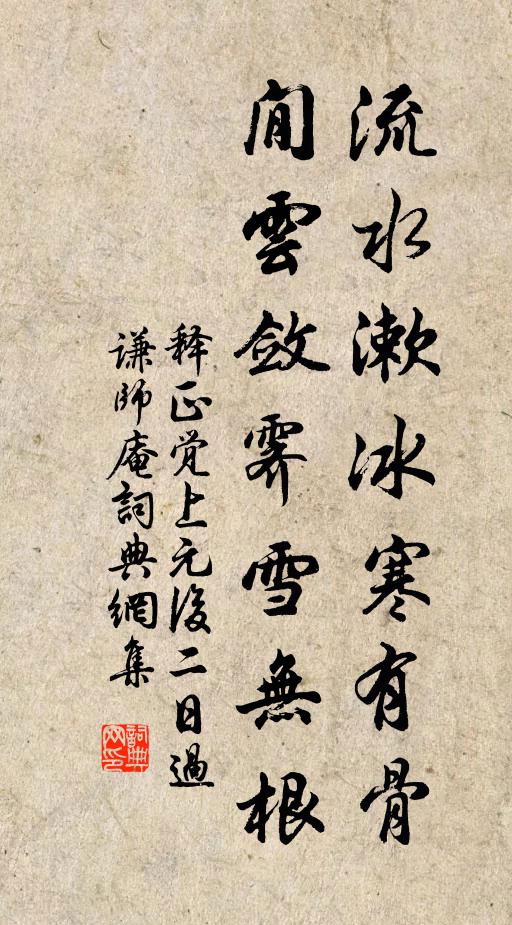 流水漱冰寒有骨
閒雲斂霽雪無根
释正觉上元後二日過
謙師庵詞典網集
詞典网印